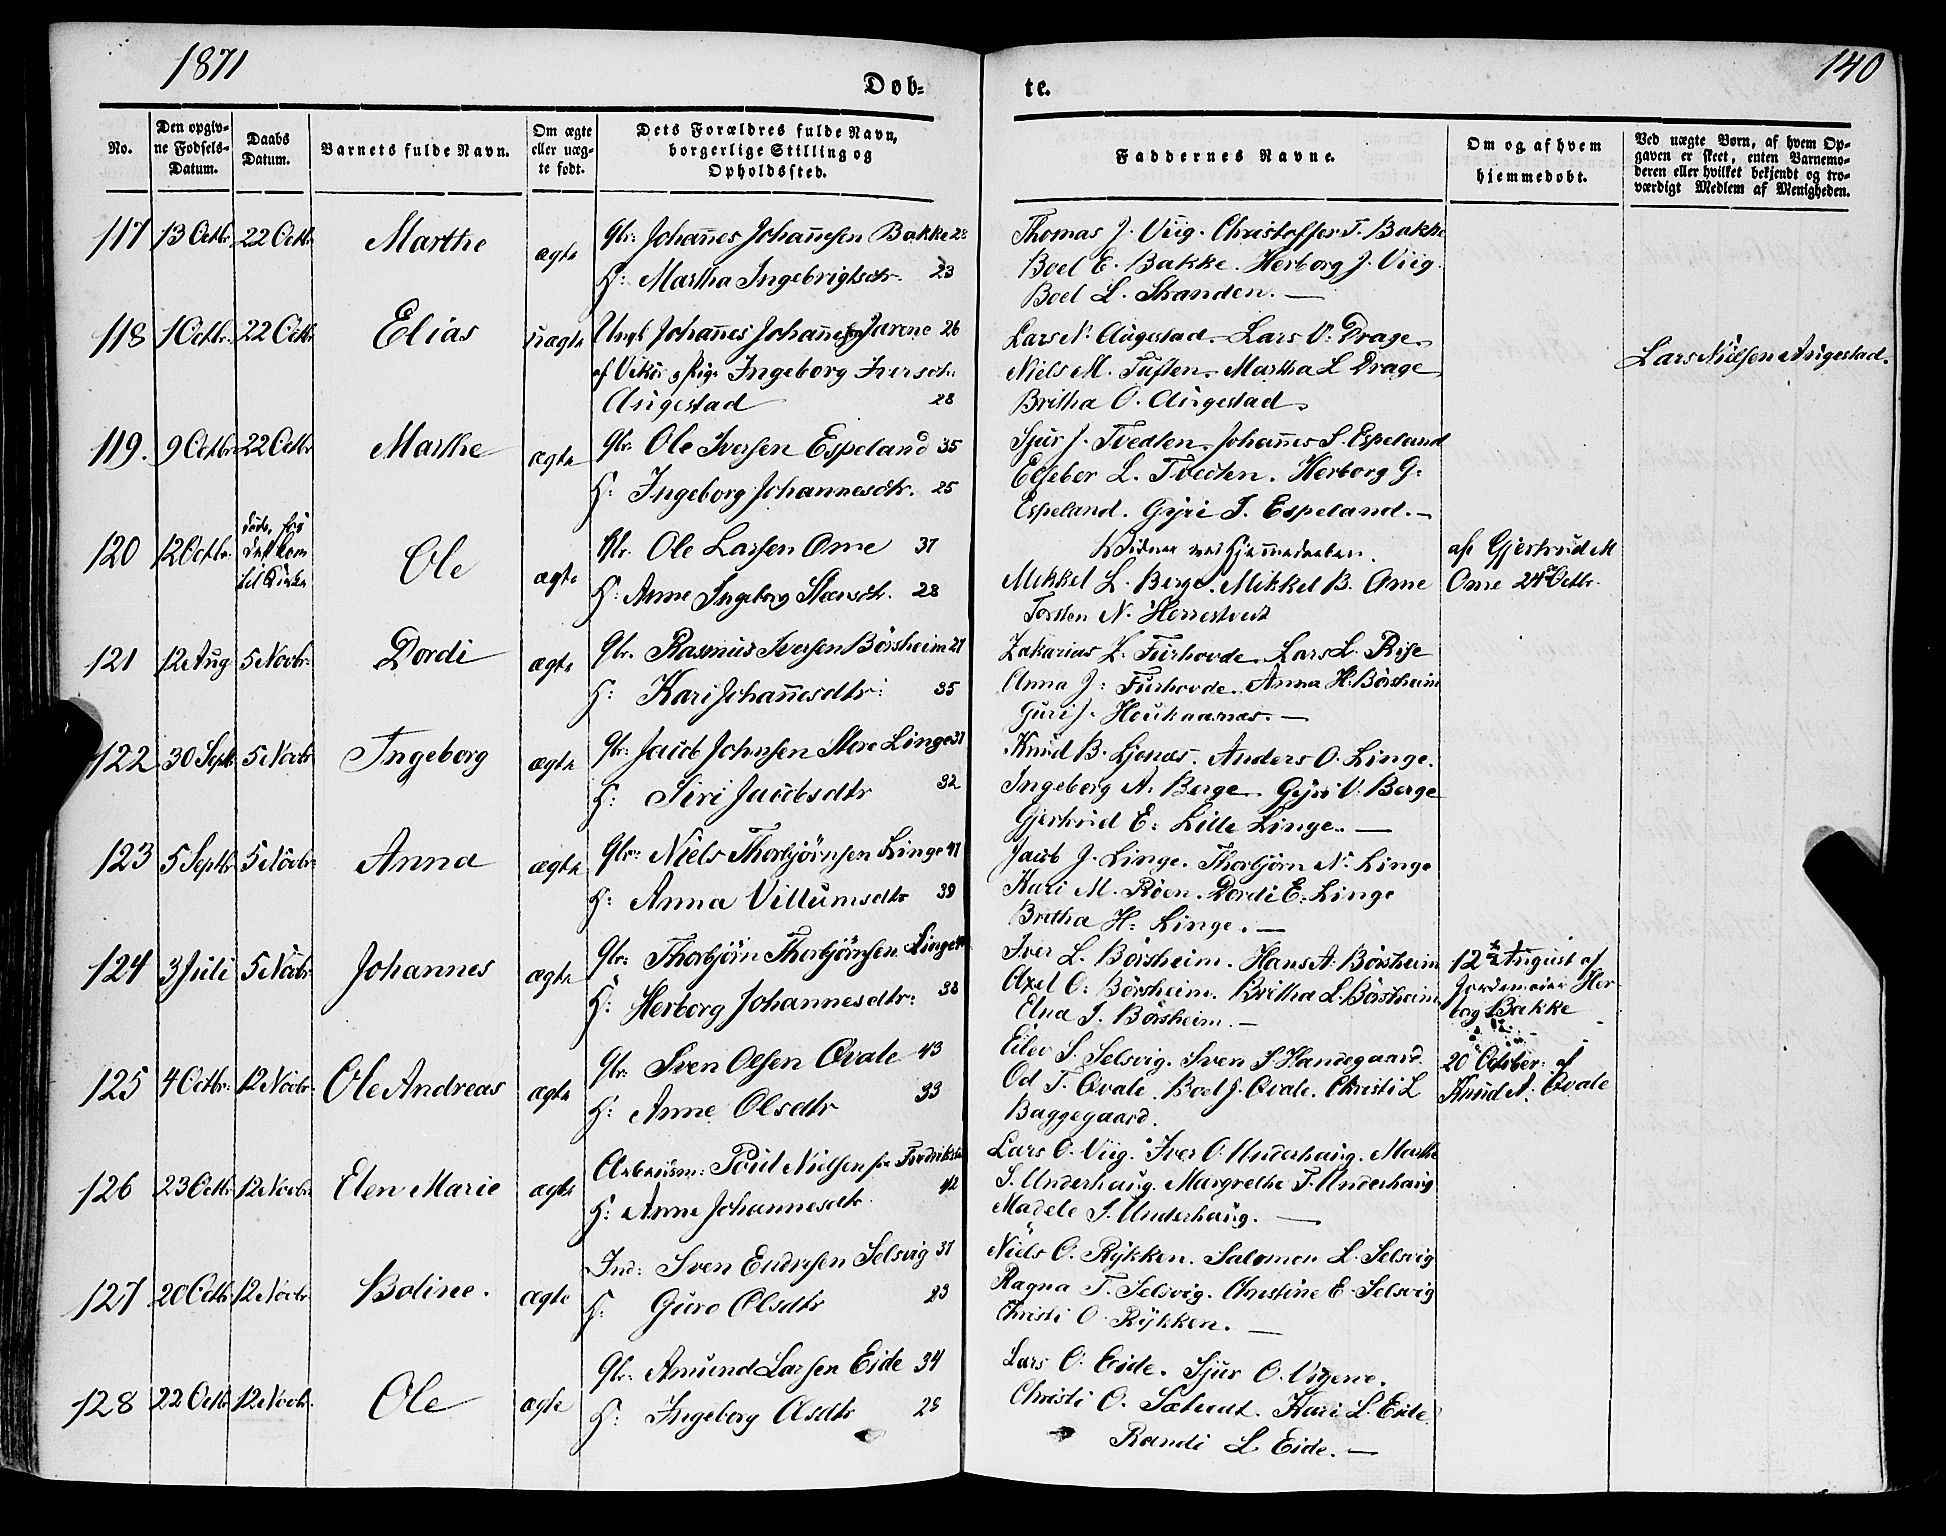 1871
140
Døb-
te.
No.
Den opgiv-
ne Fødsels-
Datum.
Daabs
Datum.
Barnets fulde Navn.
Om ægte
eller uæg-
te født.
Dets Forældres fulde Navn,
borgerlige Stilling og
Opholdssted.
Faddernes Navne.
Om og af hvem
hjemmedøbt.
Ved uægte Børn, af hvem Op-
gaven er skeet, enten Barnemo-
deren eller hvilket bekjendt og tro-
værdigt Medlem af Menigheden.
117 13 Octbr. 22 Octbr. Marthe ægte
Gbr. Johannes Johannesen Bakke 28
H: Martha Ingebrigtsdtr. 23
Thomas J. Viig. Christoffer T. Bakke
Boel E. Bakke. Herborg J. Viig.
Boel L. Stranden. —
118 1 Octbr. 22 Octbr. Elias uægte
Ungk Johannes Johannesen Jarene 26
af Vikør Pige Ingeborg Iversdtr.
Augestad 28
Lars N. Augestad. Lars V. Drage.
Niels M. Tuften. Martha L Drage,
Britha O. Augestad.
Lars Nielsen Augestad.
119. 9 Octbr. 22 Octbr. Marthe ægte
Gbr. Ole Iversen Espeland 35
H: Ingeborg Johannesdtr. 25
Sjur J. Tvedten. Johannes S. Espeland
Elseber L. Tvedten. Herborg G.
Espeland. Gyri I. Espeland. —
120 12 Octbr. døde, før
det kom
til Kirke Ole ægte
Gbr. Ole Larsen Ome 37
H: Anne Ingeborg Stensdtr. 28
Vidner ved Hjemmedaaben.
Mikkel L. Berge. Mikkel B. Ome
Torsten N. Herrestvedt
af Gjertrud M
Ome 24 Octbr.
121 12 Aug 5 Novbr. Dordi ægte
Gbr. Rasmus Iversen Børsheim 27
H: Kari Johannesdtr. 35
Zakarias L. Furhovde. Lars L. Rise
Anna J: Furhovde. Anna H. Børsheim
Guri J. Houkaanæs. —
122 30 Septb. 5 Novbr. Ingeborg ægte
Gbr: Jacob Johnsen Store Linge 37
H: Siri Jacobsdtr 32
Knud B. Ljonæs. Anders O. Linge.
Ingeborg A. Berge. Gyri V. Berge
Gjertrud E. Lille Linge. —
123 5 Septbr. 5 Novbr. Anna ægte
Gbr: Niels Thorbjörnsen Linge 41
H: Anna Villumsdtr 39
Jacob J. Linge. Thorbjörn N. Linge
Kari M. Röen. Dordi E. Linge
Britha H. Linge. —
124 3 Juli 5 Novbr. Johannes ægte
Gbr: Thorbjörn Thorbjörnsen Linge
H: Herborg Johannesdtr. 38
Iver L. Börsheim. Hans A. Börsheim
Axel O. Börsheim. Britha L. Börsheim
Elna I. Börsheim. —
12 August af
Jordemoder Her-
borg Bakke
125 4 Octbr. 12 Novbr. Ole Andreas ægte
Gbr. Sven Olsen Qvale 43
H: Anne Olsdtr 33
Eilev S. Selsvig. Sven S Handegaard.
Od T. Qvale. Boel J. Qvale. Christi L
Baggegaard.
20 October af
Knud A. Qvale
126 23 Octbr. 12 Novbr. Elen Marie ægte
Arbeidsm: Poul Nielsen fra
H: Anne Johannesdtr 42
Lars O. Viig. Iver O. Underhaug. Marthe
S. Underhaug. Margrethe T. Underhaug
Madele I. Underhaug. —
127 20 Octbr. 12 Novbr. Boline. ægte
Ind: Sven Endresen Selsvig 37
H: Guro Olsdtr 23
Niels O. Rykken. Salomon L. Selsvig
Ragna T. Selsvig. Christine E. Selsvig
Christi O Rykken. —
128 22 Octbr. 12 Novbr. Ole ægte
Gbr. Amund Larsen Eide 34
H: Ingeborg Olsdtr 28
Lars O. Eide. Sjur O. Vigene.
Christi O. Kari L. Eide
Randi L Eide. —